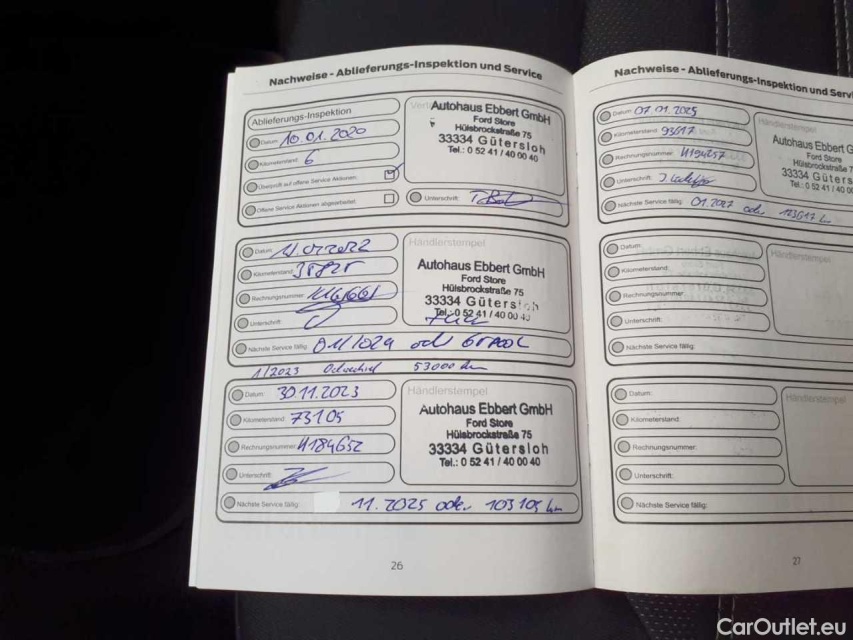 Nachweise - Ablieferungs-Inspektion und Service
Ablieferungs-Inspektion
Datum: 10.01.2020
Kilometerstand: 6
Überprüft auf offene Service Aktionen:
Offene Service Aktionen abgearbeitet:
Autohaus Ebbert GmbH
Ford Store
Hülsbrockstraße 75
33334 Gütersloh
Tel.: 0 52 41 / 40 00 40
Unterschrift:
Datum:
Kilometerstand:
Rechnungsnummer:
Unterschrift:
Händlerstempel
Autohaus Ebbert GmbH
Ford Store
Hülsbrockstraße 75
33334 Gütersloh
Tel.: 0 52 41 / 40 00 40
Nächste Service fällig:
1/2023 53000 km
Datum: 30.11.2023
Kilometerstand: 73105
Rechnungsnummer: 4184652
Unterschrift:
Händlerstempel
Autohaus Ebbert GmbH
Ford Store
Hülsbrockstraße 75
33334 Gütersloh
Tel.: 0 52 41 / 40 00 40
Nächste Service fällig: 11.2025 oder 103105 km
26
Nachweise - Ablieferungs-Inspektion und Servi
Datum: 07.01.2025
Kilometerstand: 93617
Rechnungsnummer: 4194257
Unterschrift:
Händlerstempel
Autohaus Ebbert G
Ford Store
Hülsbrockstraße
33334 Güters
Tel.: 0 52 41 / 40 0
Nächste Service fällig: 01.2027 oder 123617 km
Datum:
Kilometerstand:
Rechnungsnummer:
Unterschrift:
Händlerstempel
Nächste Service fällig:
Datum:
Kilometerstand:
Rechnungsnummer:
Unterschrift:
Händlerstempel
Nächste Service fällig:
27
CarOutlet.eu